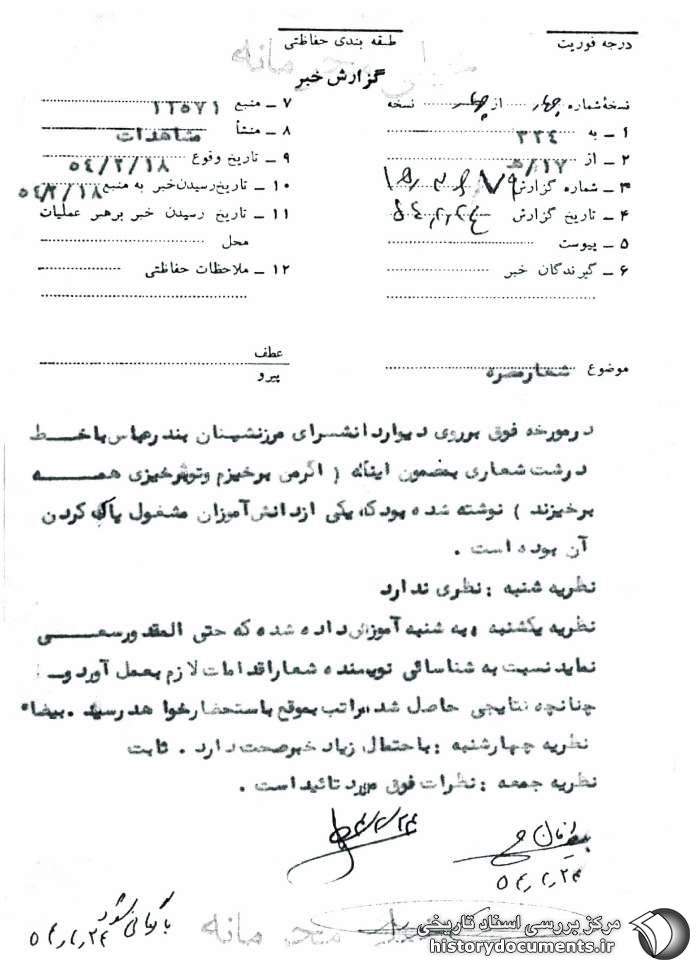 درجه فوریت
طبقه بندی حفاظتی
گزارش خبر
نسخهٔ شماره چهار از چهار نسخه
۱ ـ به ۳۳۴
۲ ـ از ۱۷/ه
۳ ـ شماره گزارش
۴ ـ تاریخ گزارش
۵ ـ پیوست
۶ ـ گیرندگان خبر
۷ ـ منبع ۱۱۵۷۱
۸ ـ منشأ مشاهدات
۹ ـ تاریخ وقوع ۵۴/۲/۱۸
۱۰ ـ تاریخ رسیدن خبر به منبع ۵۴/۲/۱۸
۱۱ ـ تاریخ رسیدن خبر برهبر عملیات
محل
۱۲ ـ ملاحظات حفاظتی
موضوع شعارمضره
عطف
پیرو
درمورخه فوق برروی دیواردانشسرای مرزنشینان بندرعباس باخط
درشت شعاری بمضمون اینکه ( اگرمن برخیزم وتوبرخیزی همه
برخیزند ) نوشته شده بودکه یکی ازدانش‌آموزان مشغول پاک کردن
آن بوده است .
نظریه شنبه : نظری ندارد
نظریه یکشنبه : به شنبه آموزش داده شده که حتی المقدورسعی
نماید نسبت به شناسائی نویسنده شعاراقدامات لازم بعمل آورد و
چنانچه نتایجی حاصل شد مراتب بموقع باستحضارخواهدرسید . بیضاء
نظریه چهارشنبه : باحتمال زیاد خبرصحت دارد . ثابت
نظریه جمعه : نظرات فوق مورد تائیداست .
۵۴,۲,۲۴
بایگانی شود
۵۴,۲,۲۴
محرمانه
مرکز بررسی اسناد تاریخی
historydocuments.ir